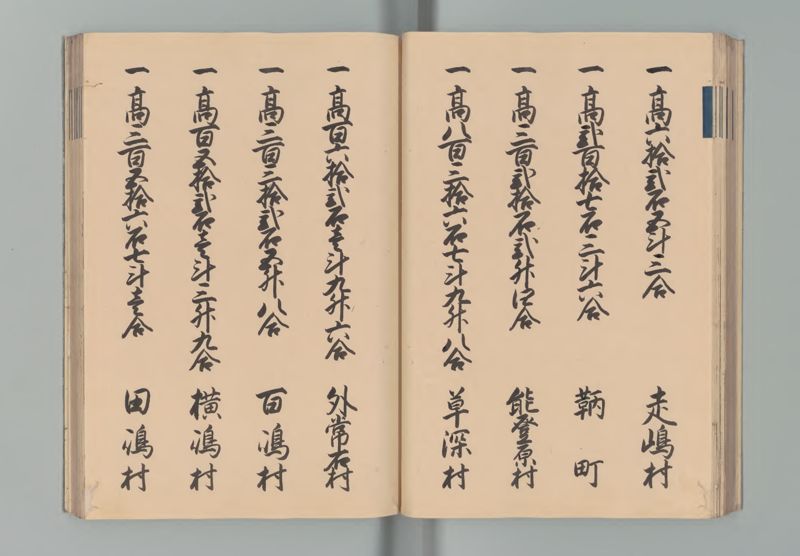 一高六拾弐石五斗三合 走嶋村
一高弐百拾七石二斗六合 鞆町
一高三百弐拾石弐升四合 能登原村
一高八百三拾六石七斗九升八合 草深村
一高百六拾弐石壱斗九升六合 外常石村
一高三百三拾弐石五升八合 百嶋村
一高百五拾弐石壱斗三升九合 横嶋村
一高三百五拾六石七斗壱合 田嶋村